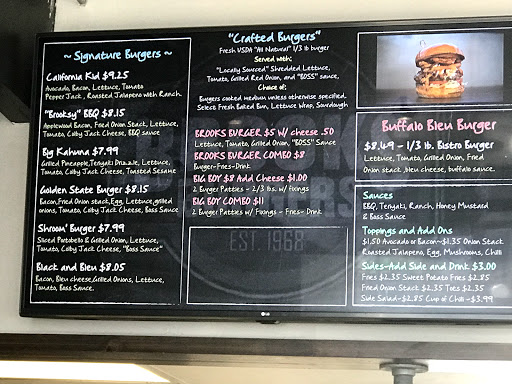 ~ Signature Burgers ~
California Kid $9.25
Avocado, Bacon, Lettuce, Tomato
Pepper Jack, Roasted Jalapeno with Ranch.
"Brooksy" BBQ $8.15
Applewood Bacon, Fried Onion Stack, Lettuce,
Tomato, Colby Jack Cheese, BBQ sauce
Big Kahuna $7.99
Grilled Pineapple, Teriyaki Drizzle, Lettuce,
Tomato, Colby Jack Cheese, Toasted Sesame
Golden State Burger $8.15
Bacon, Fried Onion stack, Egg, Lettuce, grilled
onions, Tomato, Colby Jack Cheese, Boss Sauce
Shroom' Burger $7.99
Sliced Portobello & Grilled Onion, Lettuce,
Tomato, Colby Jack Cheese, "Boss Sauce"
Black and Bleu $8.05
Bacon, Bleu cheese, Grilled Onions, Lettuce,
Tomato, Boss Sauce.
"Crafted Burgers"
Fresh USDA "All Natural" 1/3 lb burger
Served with:
"Locally Sourced" Shredded Lettuce,
Tomato, Grilled Red Onion, and "BOSS" sauce,
Choice of:
Burgers cooked medium unless otherwise specified.
Select Fresh Baked Bun, Lettuce Wrap, Sourdough
BROOKS BURGER $5 w/ cheese .50
Lettuce, Tomato, Grilled Onion, "BOSS" Sauce
BROOKS BURGER COMBO $8
Burger-Fries-Drink
BIG BOY $8 Add Cheese $1.00
2 Burger Patties - 2/3 lbs. w/ fixings
BIG BOY COMBO $11
2 Burger Patties w/ Fixings - Fries- Drink
EST. 1968
Buffalo Bleu Burger
$8.49 - 1/3 lb. Bistro Burger
Lettuce, Tomato, Grilled Onion, Fried
Onion stack, bleu cheese, buffalo sauce.
Sauces
BBQ, Teriyaki, Ranch, Honey Mustard
& Boss Sauce
Toppings and Add Ons
$1.50 Avocado or Bacon~$1.35 Onion Stack
Roasted Jalapeno, Egg, Mushrooms, Chilli
Sides-Add Side and Drink $3.00
Fries $2.35 Sweet Potato Fries $2.85
Fried Onion Stack $2.35 Tots $2.35
Side Salad~$2.85 Cup of Chili~$3.99
LG